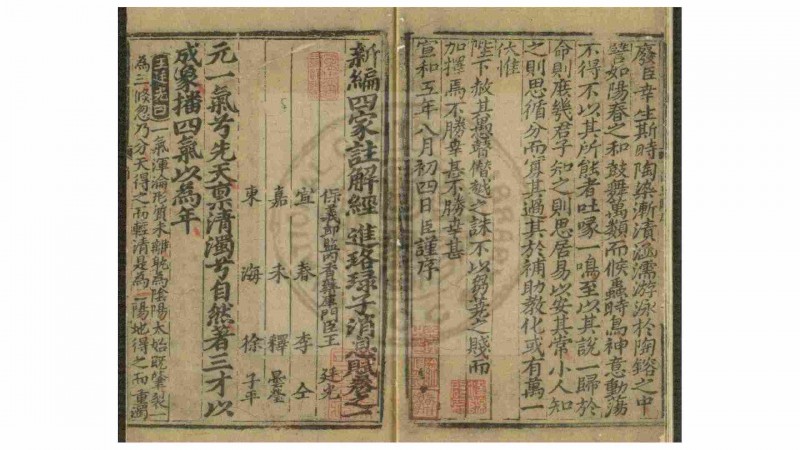 廢臣幸生斯時陶染漸漬涵濡游泳於陶鎔之中
譬如陽春之和鼓舞萬類而候蟲時鳥神意動蕩
不得不以其所能者吐喙一鳴至以其說一歸於
命則庶幾君子知之則思居易以安其常小人知
之則思循分而寡其過其於補助教化或有萬一
伏惟
陛下赦其愚瞽僭越之誅不以芻蕘之賤而
加擇焉不勝幸甚不勝幸甚
宣和五年八月初四日臣謹序
新編四家註解經進珞琭子消息賦卷之一
保義郎監內香藥庫門臣王廷光
宜春李仝
嘉禾釋曇瑩
東海徐子平
元一氣兮先天稟清濁兮自然著三才以
成象播四氣以為年
王廷光曰一氣渾淪形質未離孰為陰陽太始既肇裂一
為三倏忽乃分天得之而輕清是為一陽地得之而重濁